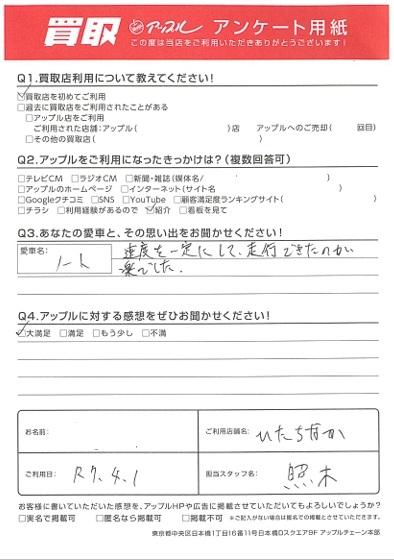 買取 アップル アンケート用紙
この度は当店をご利用いただきありがとうございます!
Q1.買取店利用について教えてください!
☑買取店を初めてご利用
□過去に買取店をご利用されたことがある
□アップル店をご利用
ご利用された店舗:アップル( )店 アップルへのご売却( 回目)
□その他の買取店( )
Q2.アップルをご利用になったきっかけは?(複数回答可)
□テレビCM □ラジオCM □新聞・雑誌(媒体名/ )
□アップルのホームページ □インターネット(サイト名 )
□Googleクチコミ □SNS □YouTube □顧客満足度ランキングサイト( )
□チラシ □利用経験があるので ☑紹介 □看板を見て
Q3.あなたの愛車と、その思い出をお聞かせください!
愛車名: ノート 速度を一定にして、走行できたのが
楽でした.
Q4.アップルに対する感想をぜひお聞かせください!
☑大満足 □満足 □もう少し □不満
お名前: ご利用店舗名: ひたちなか
ご利用日: R7.4.1 担当スタッフ名: 照木
お客様に書いていただいた感想を、アップルHPや広告に掲載させていただいてもよろしいでしょうか?
□実名で掲載可 □匿名なら掲載可 □掲載不可 ※ご記入がない場合は匿名での掲載とさせていただきます。
東京都中央区日本橋1丁目16番11号日本橋Dスクエア9F アップルチェーン本部